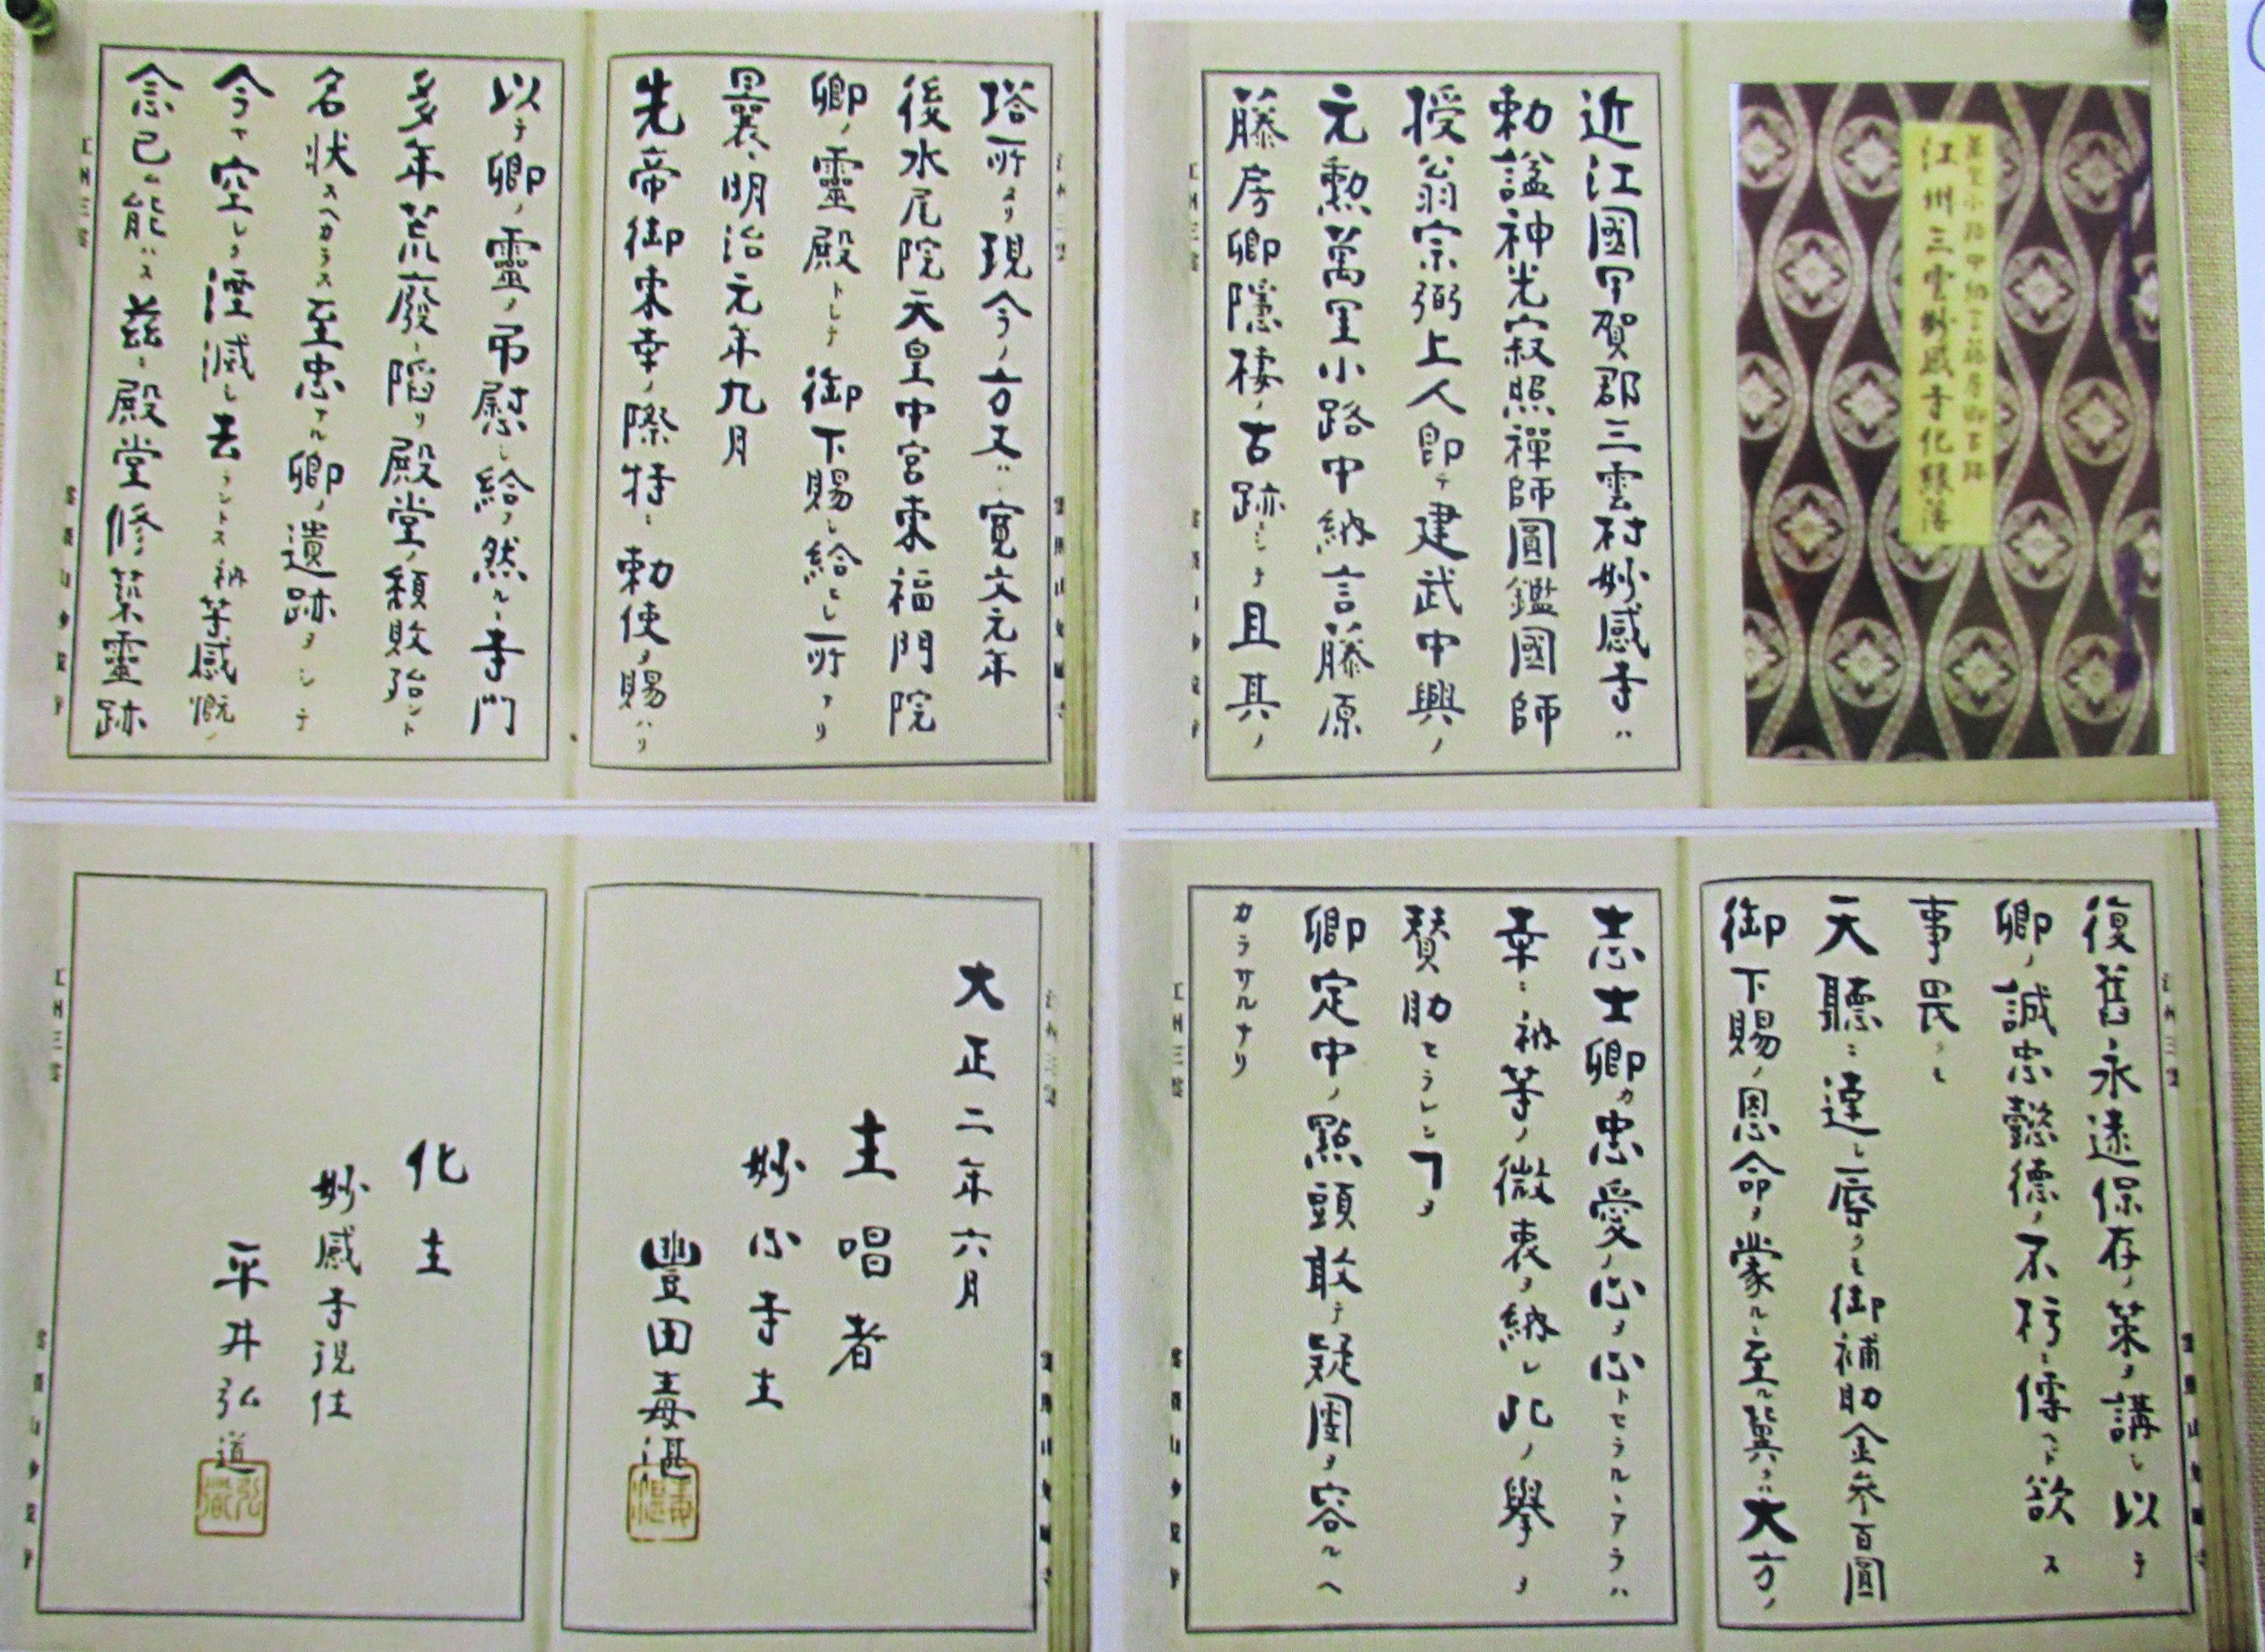 萬里小路中納言藤房卿古跡
江州三雲妙感寺化縁簿
近江國甲賀郡三雲村妙感寺ハ
勅諡神光寂照禪師圓鑑國師
授翁宗弼上人即チ建武中興ノ
元勲萬里小路中納言藤原
藤房卿隱棲ノ古跡ニシテ且其ノ
塔所タリ現今ノ方丈ハ寛文元年
後水尾院天皇中宮東福門院
卿ノ靈殿トシテ御下賜シ給ヒシ所ナリ
曩ニ明治元年九月
先帝御東幸ノ際特ニ勅使ヲ賜ハリ
以テ卿ノ靈ヲ吊慰シ給フ然ルニ寺門
多年荒廢ニ陷リ殿堂ノ頽敗殆ント
名状スヘカラス至忠ナル卿ノ遺跡ヲシテ
今ヤ空シク湮滅シ去ラントス衲等感慨ノ
念已ム能ハス茲ニ殿堂修築靈跡
復舊永遠保存ノ策ヲ講シ以テ
卿ノ誠忠懿德ヲ不朽ニ傳ヘント欲ス
事畏クモ
天聽ニ達シ辱クモ御補助金參百圓
御下賜ノ恩命ヲ蒙ルニ至ル冀クハ大方ノ
志士卿カ忠愛ノ心ヲ心トセラルヽアラハ
幸ニ衲等ノ微衷ヲ納レ此ノ擧ヲ
賛助セラレンヿヲ
卿定中ノ點頭敢テ疑團ヲ容ルヘ
カラサルナリ
大正二年六月
主唱者
妙心寺主
豐田毒湛
化主
妙感寺現住
平井弘道